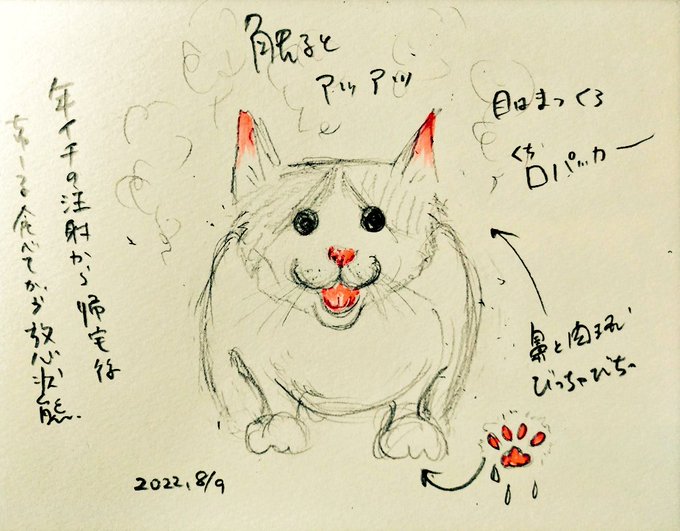 触ると
アッアツ
目はまっくろ
くち
口パッカー
鼻と肉球
びっちゃびちゃ
年イチの注射から帰宅後
ちゅーる食べてから放心状態
2022,8/9